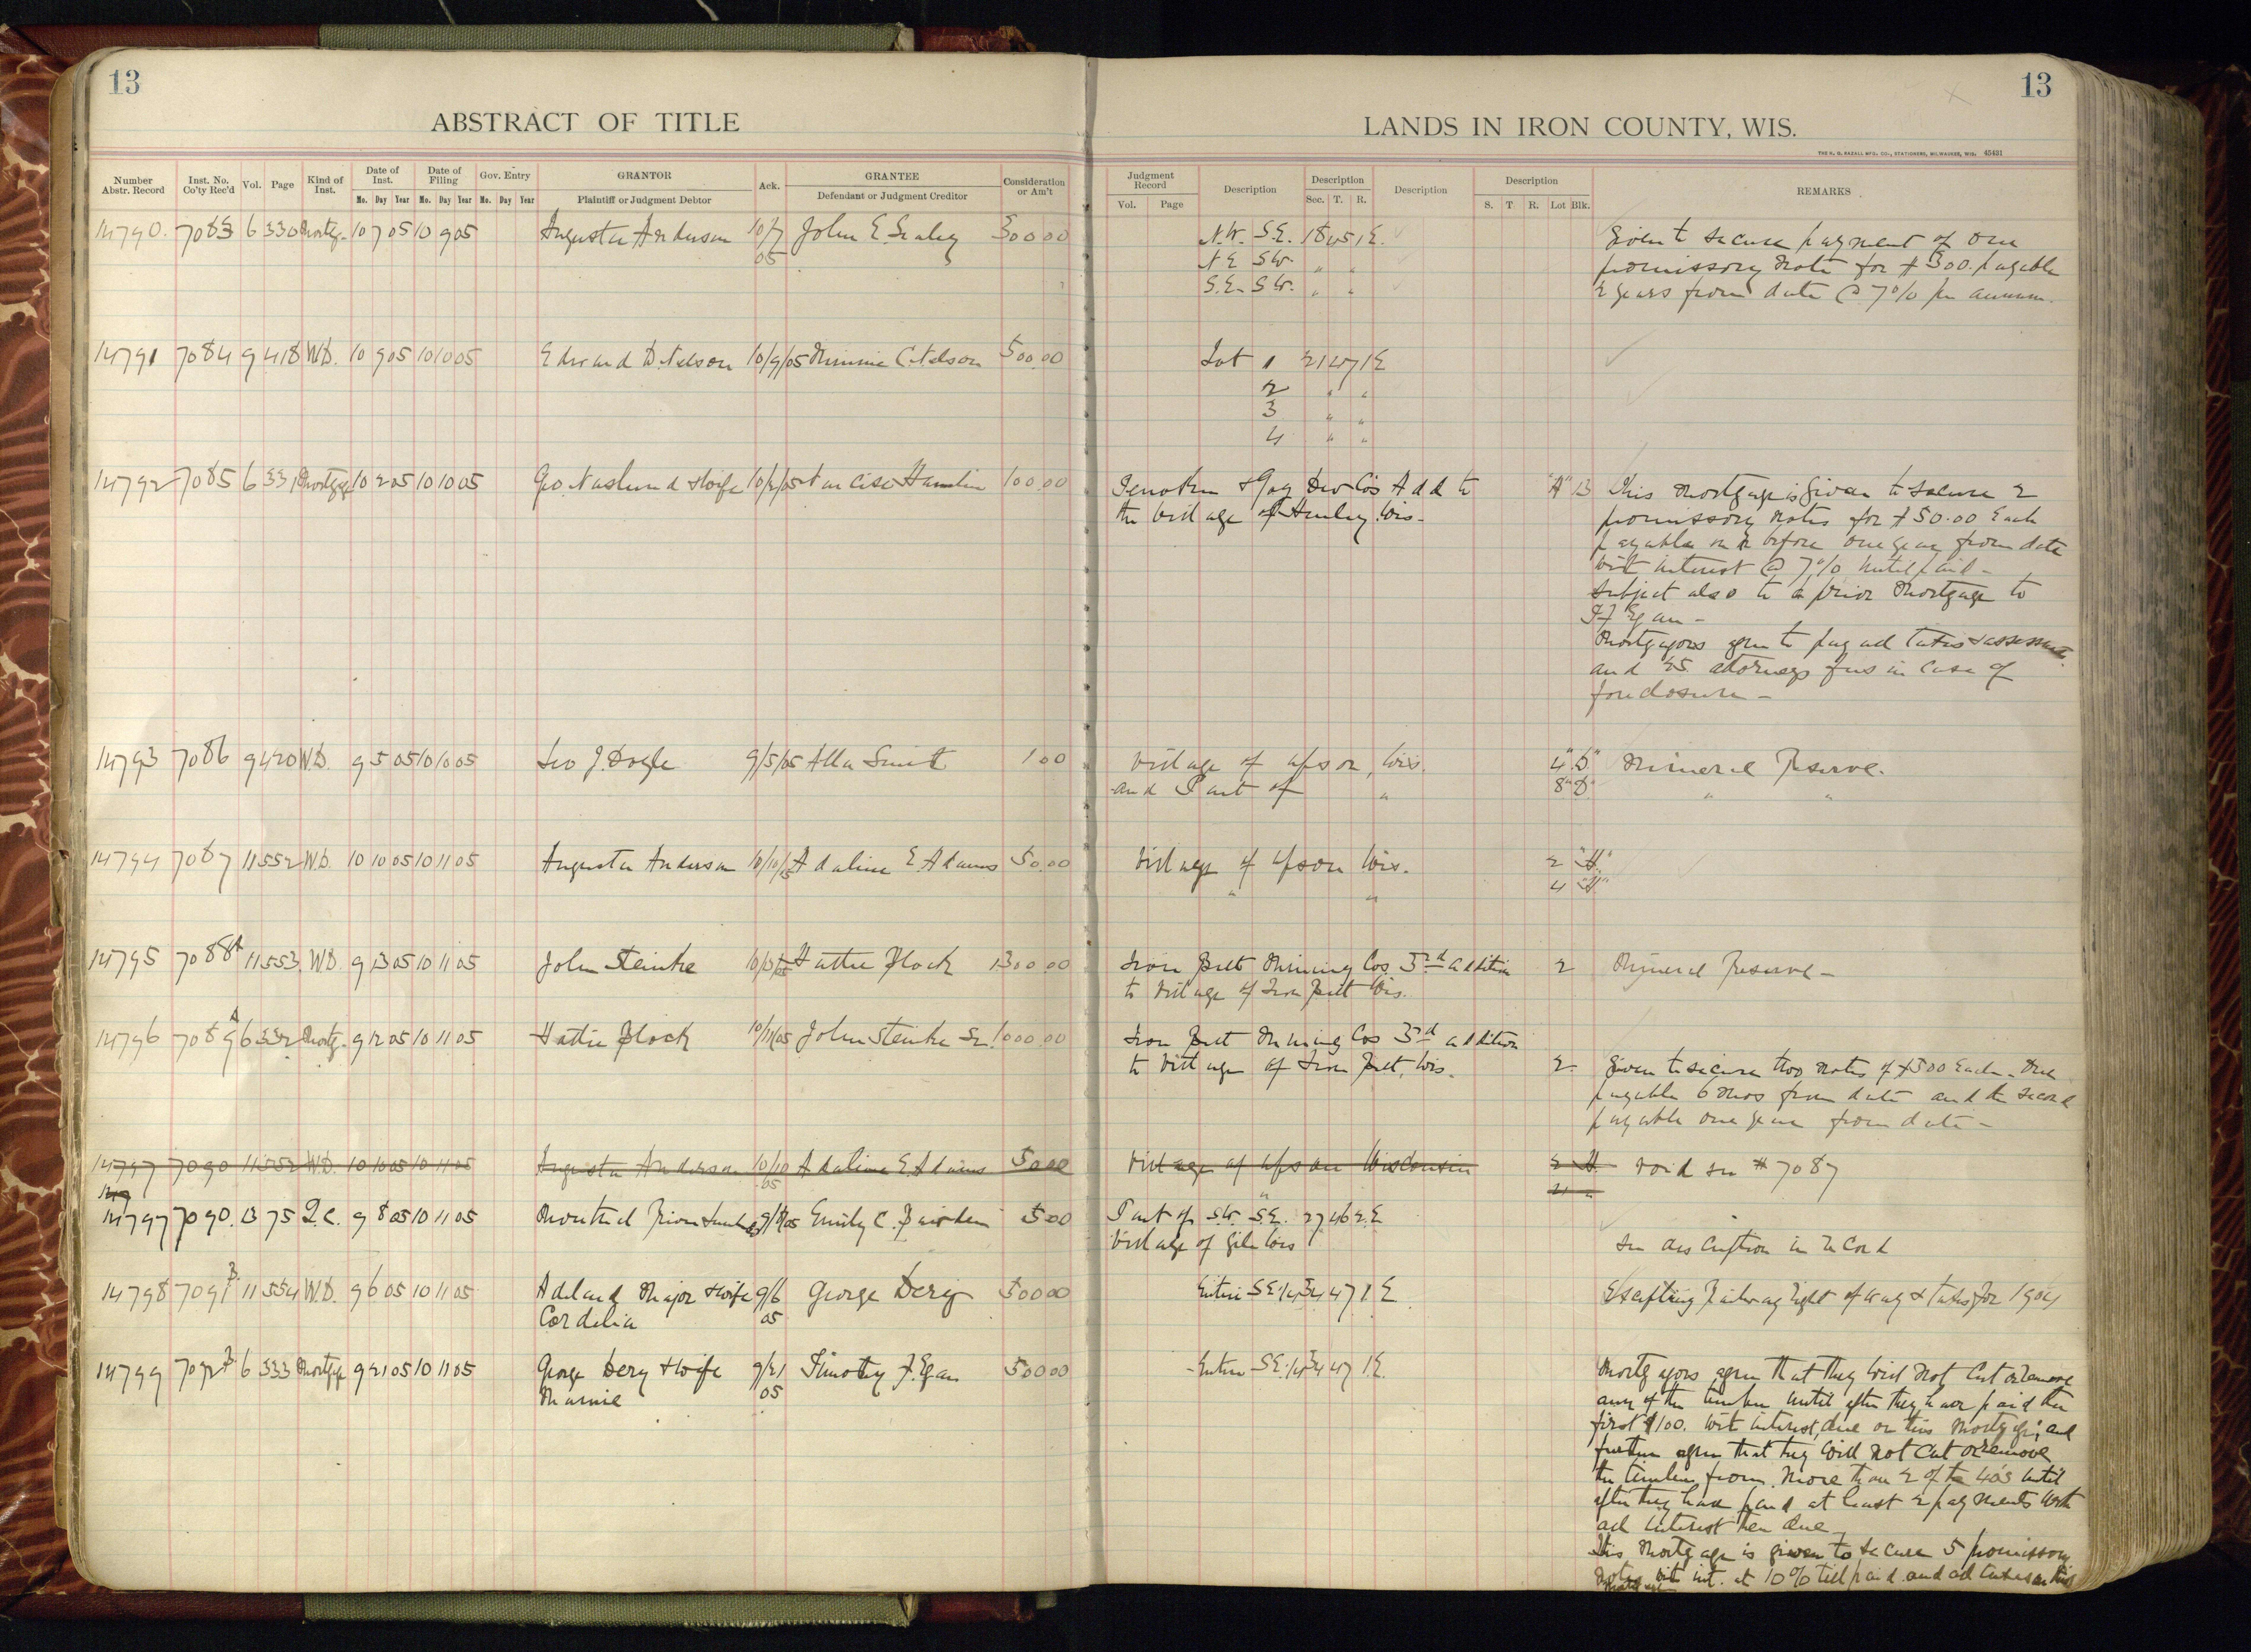 13
ABSTRACT OF TITLE
Number Abstr. Record
Inst. No. Co'ty Rec'd
Vol.
Page
Kind of Inst.
Date of Inst.
Mo. Day Year
Date of Filing
Mo. Day Year
Gov. Entry
Mo. Day Year
GRANTOR
Plaintiff or Judgment Debtor
Ack.
GRANTEE
Defendant or Judgment Creditor
Consideration or Am't
14790. 7083 6 330 Mortg. 10 7 05 10 9 05 Augusta Anderson 10/7 John E. 300 00
05
14791 7084 9 418 W.D. 10 9 05 10 10 05 Edward D. Nelson 10/9/05 Minnie C. Nelson 500.00
14792 7085 6 331 Mortgage 10 2 05 10 10 05 Geo. Naslund & Wife 10/2/05 Narcise Hamlin 100.00
14793 7086 9 420 W.D. 9 5 05 10 10 05 Leo J. Doyle 9/5/05 Alla Smith 1 00
14794 7087 11 552 W.D. 10 10 05 10 11 05 Augusta Anderson 10/10/05 Adaline E. Adams 50.00
14795 7088A 11 553 W.D. 9 13 05 10 11 05 John Steinke Hattie Block 1300 00
14796 7089A 6 332 Mortg. 9 12 05 10 11 05 Hattie Block 10/11/05 John Steinke Sr. 1000.00
14797 7090 11 552 W.D. 10 10 05 10 11 05 Augusta Anderson 10/10 Adaline E. Adams 50 00
05
14797 7090. 13 75 Q.C. 9 8 05 10 11 05 Montreal River Emily C. 5 00
14798 7091B 11 554 W.D. 9 6 05 10 11 05 Adelard Major & Wife 9/6 George Dery 500 00
Cordelia 05
14799 7092B 6 333 Mortgage 9 21 05 10 11 05 George Dery & Wife 9/21 Timothy F. Egan 500 00
Mamie 05
13
LANDS IN IRON COUNTY, WIS.
THE H. G. RAZALL MFG. CO., STATIONERS, MILWAUKEE, WIS. 45421
Judgment Record
Vol. Page
Description
Description
Sec. T. R.
Description
Description
S. T. R. Lot Blk.
REMARKS
N.W. S.E. 18 45 1 E. Given to secure payment of one
N E S W. " " promissory note for $300. payable
S.E. S W. " " 2 years from date @ 7% per annum.
Lot 1 21 47 1 E
2 " "
3 " "
4 " "
& Gay Dev Co's Add to "A" 13 This Mortgage is Given to secure 2
the Village of Hurley Wis. promissory notes for $50.00 Each
payable on or before one year from date
with interest @ 7% until paid -
subject also to a prior Mortgage to
T F Egan -
Mortgagors agree to pay all taxes & assessments
and 25. attorneys fees in case of
foreclosure -
Village of Upson, Wis. 4 "D" Mineral Reserve.
and Part of " 8 "D" " "
Village of Upson Wis. 2 "H"
" " 4 "H"
Iron Belt Mining Cos. 3rd addition 2 Mineral Reserve -
to Village of Iron Belt Wis.
Iron Belt Mining Cos 3rd addition
to Village of Iron Belt, Wis. 2. Given to secure two notes of $500 Each. One
payable 6 mos from date and the second
payable one year from date -
Village of Upson Wisconsin 2 H. Void see # 7087
" 4 "
Part of S.W. S.E. 27 46 2 E
Village of Gile Wis see description in record
Entire SE 1/4 34 47 1 E Excepting Railway right of way & taxes for 1904
Entire S.E. 1/4 34 47 1 E. Mortgagors agree that they will not cut or remove
any of the timber until after they have paid the
first $100. with interest, due on this mortgage; and
further agree that they will not cut or remove
the timber from more than 2 of the 40's until
after they have paid at least 2 payments with
all interest then due -
This Mortgage is given to secure 5 promissory
notes with int. at 10% till paid and all taxes on this